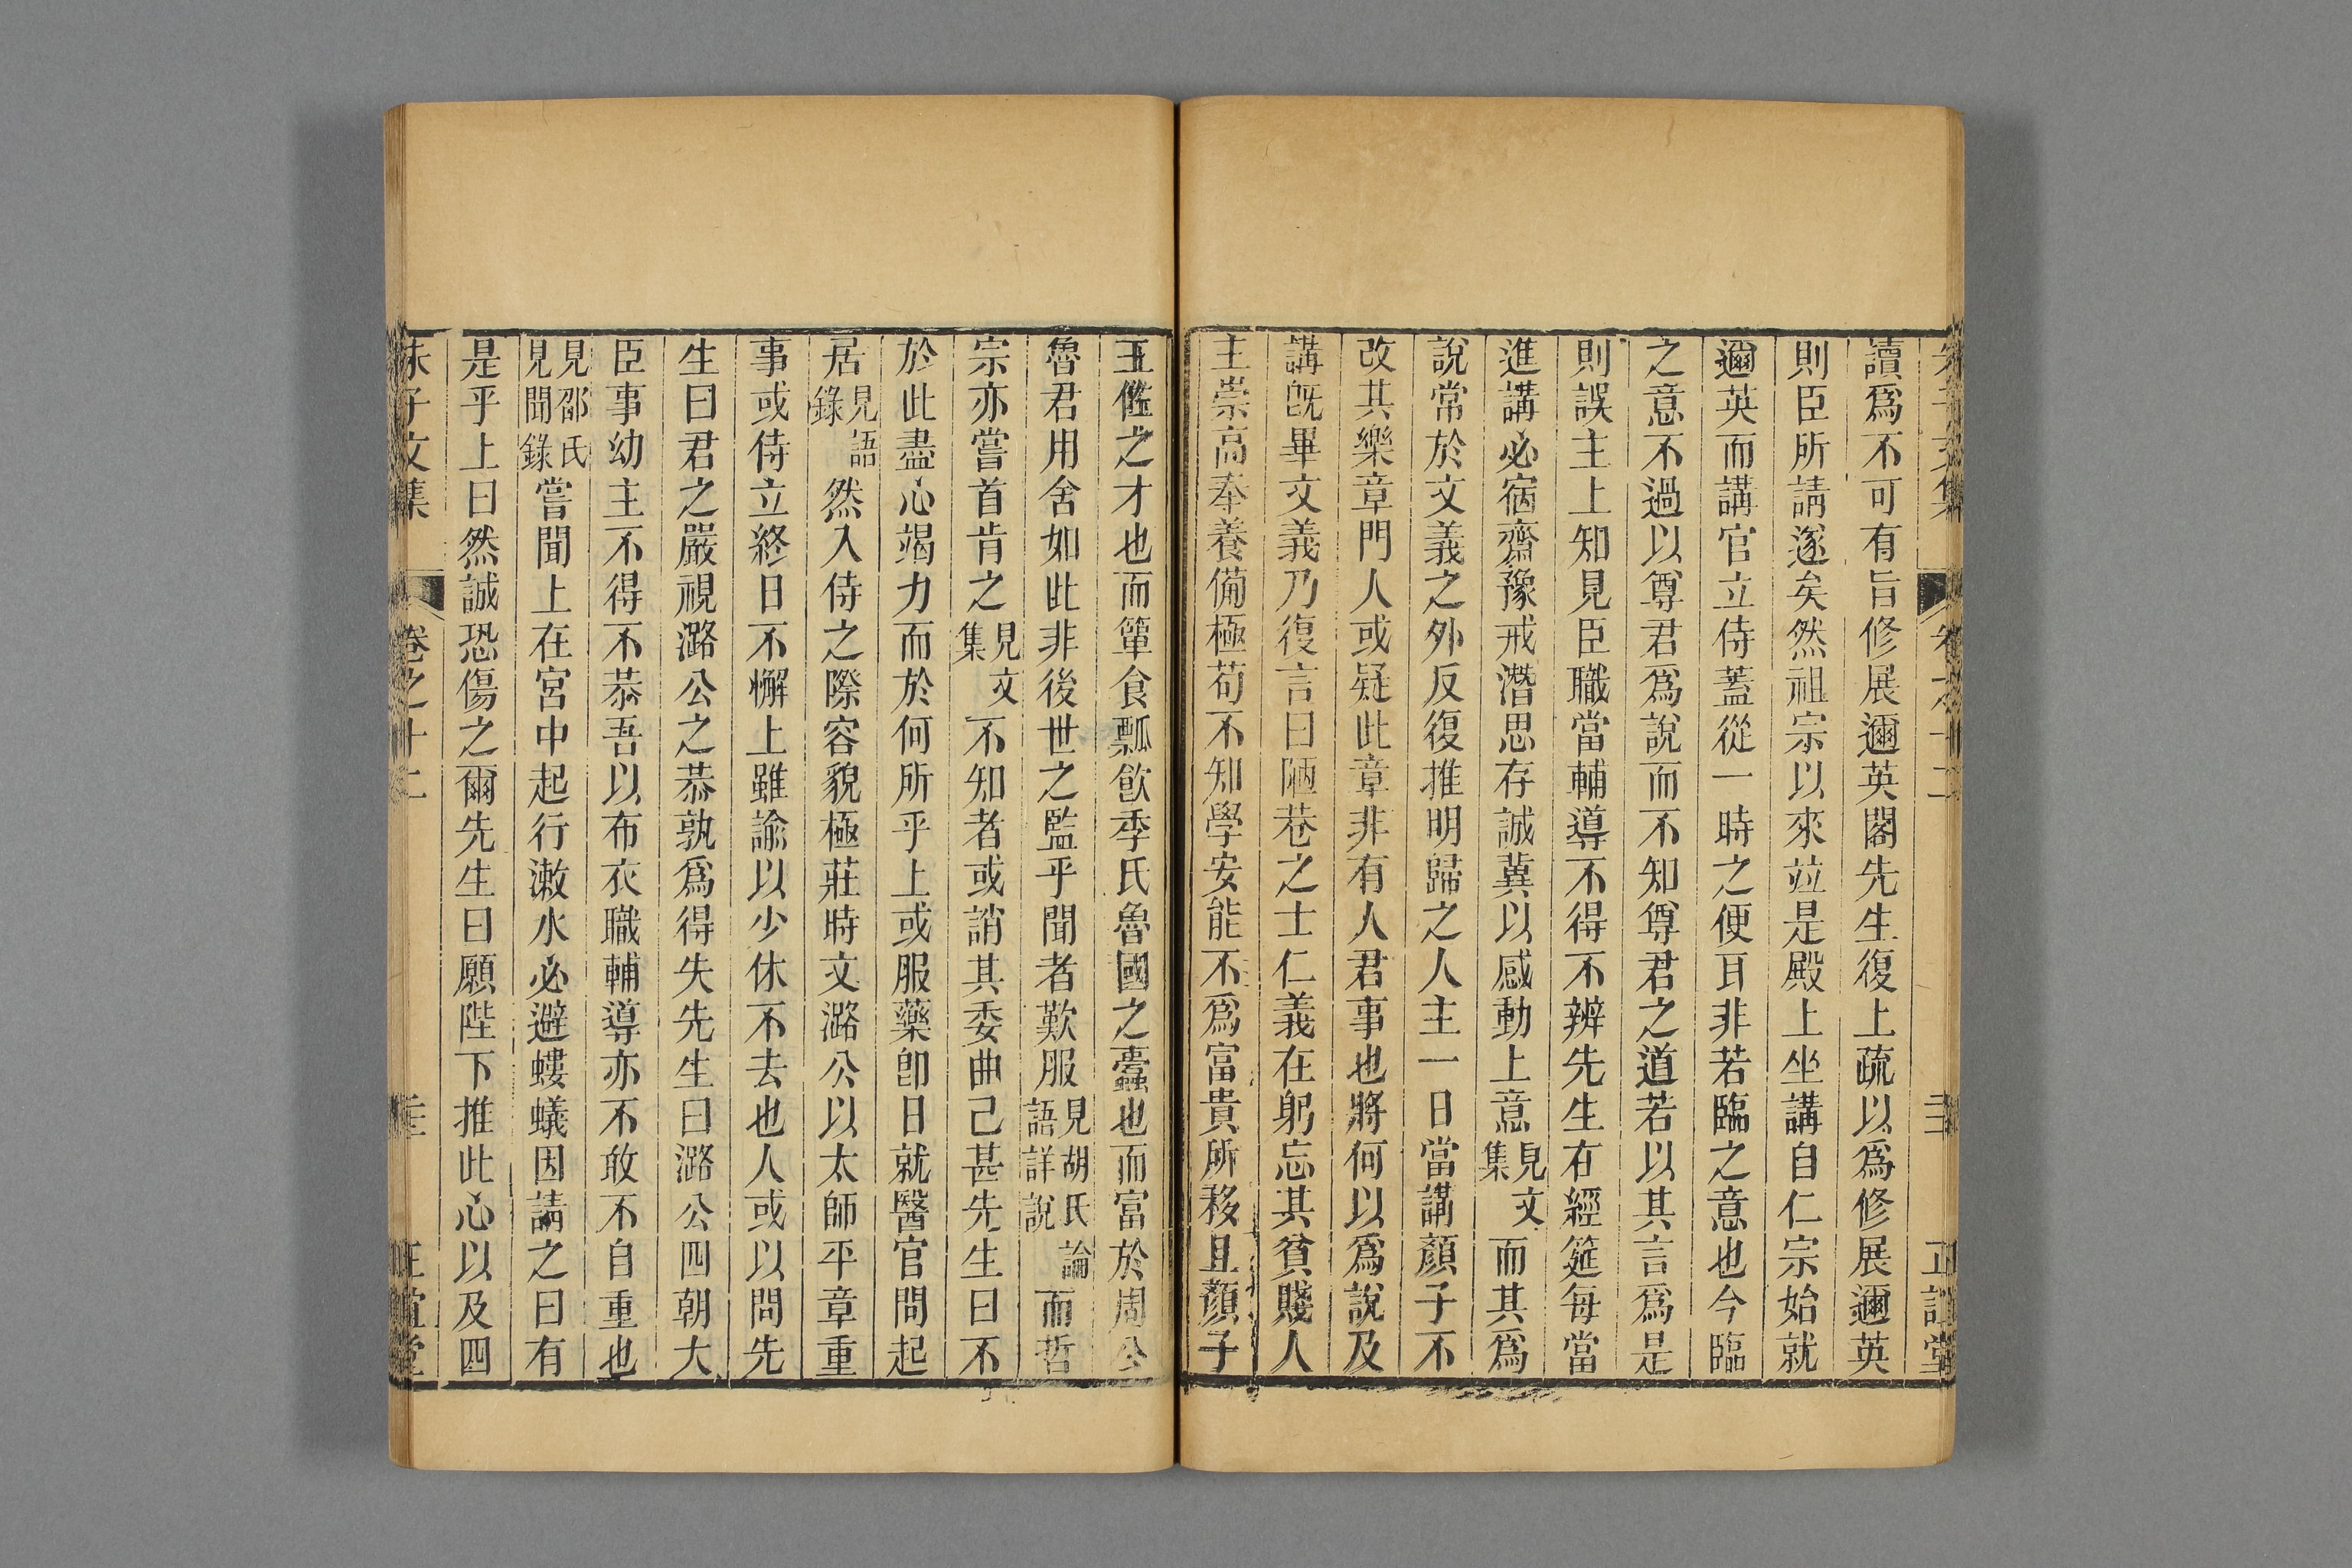 讀爲不可有旨修展邇英閣先生復上疏以爲修展邇英
則臣所請遂矣然祖宗以來竝是殿上坐講自仁宗始就
邇英而講官立侍蓋從一時之便耳非若臨之意也今臨
之意不過以尊君爲說而不知尊君之道若以其言爲是
則誤主上知見臣職當輔導不得不辨先生在經筵每當
進講必宿齋豫戒潛思存誠冀以感動上意見文集而其爲
說常於文義之外反復推明歸之人主一日當講顏子不
改其樂章門人或疑此章非有人君事也將何以爲說及
講旣畢文義乃復言曰陋巷之士仁義在躬忘其貧賤人
主崇高奉養備極苟不知學安能不爲富貴所移且顏子
王佐之才也而簞食瓢飮季氏魯國之蠹也而富於周公
魯君用舍如此非後世之監乎聞者歎服見胡氏論語詳說而哲
宗亦嘗首肯之見文集不知者或誚其委曲已甚先生曰不
於此盡心竭力而於何所乎上或服藥卽日就醫官問起
居見語錄然入侍之際容貌極莊時文潞公以太師平章重
事或侍立終日不懈上雖諭以少休不去也人或以問先
生曰君之嚴視潞公之恭孰爲得失先生曰潞公四朝大
臣事幼主不得不恭吾以布衣職輔導亦不敢不自重也
見邵氏見聞錄嘗聞上在宮中起行漱水必避螻蟻因請之曰有
是乎上曰然誠恐傷之爾先生曰願陛下推此心以及四
朱子文集
卷之十二
正誼堂